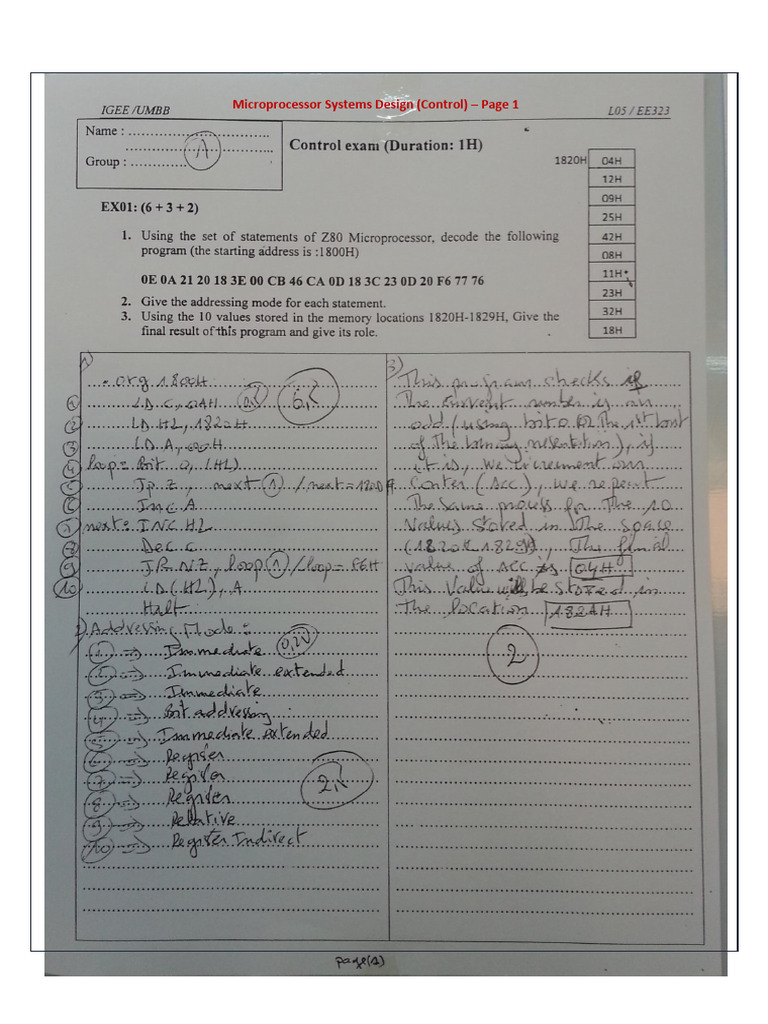 Microprocessor Systems Design (Control) – Page 1
IGEE /UMBB
L05 / EE323
Name : ..............................
A
Group : .............
Control exam (Duration: 1H)
1820H 04H
12H
09H
25H
42H
08H
11H
23H
32H
18H
EX01: (6 + 3 + 2)
1. Using the set of statements of Z80 Microprocessor, decode the following
program (the starting address is :1800H)
0E 0A 21 20 18 3E 00 CB 46 CA 0D 18 3C 23 0D 20 F6 77 76
2. Give the addressing mode for each statement.
3. Using the 10 values stored in the memory locations 1820H-1829H, Give the
final result of this program and give its role.
1)
. org 1800H
1 LD C, 0AH
2 LD HL, 1820H
3 LD A, 00H
4 loop = Bit 0, (HL)
5 Jp Z, next 1 / next =
6 Inc A
7 next = INC HL
8 Dec C
9 JR NZ, loop 1 / loop = F6H
10 LD (HL), A
Halt
2) Addressing Mode =
1 => Immediate
2 => Immediate extended
3 => Immediate
4 => Bit addressing
5 => Immediate extended
6 => Register
7 => Register
8 => Register
9 => Relative
10 => Register Indirect
3) This program checks if
The current number is an
odd (using bit 0 The 1st bit
of The binary), if
it is, we increment our
Conter (Acc), we repeat
The same process for The 10
Values stored in The space
(1820H 1829H), The final
value of Acc is 04H
This Value will be stored in
The location 182AH
2
page(1)